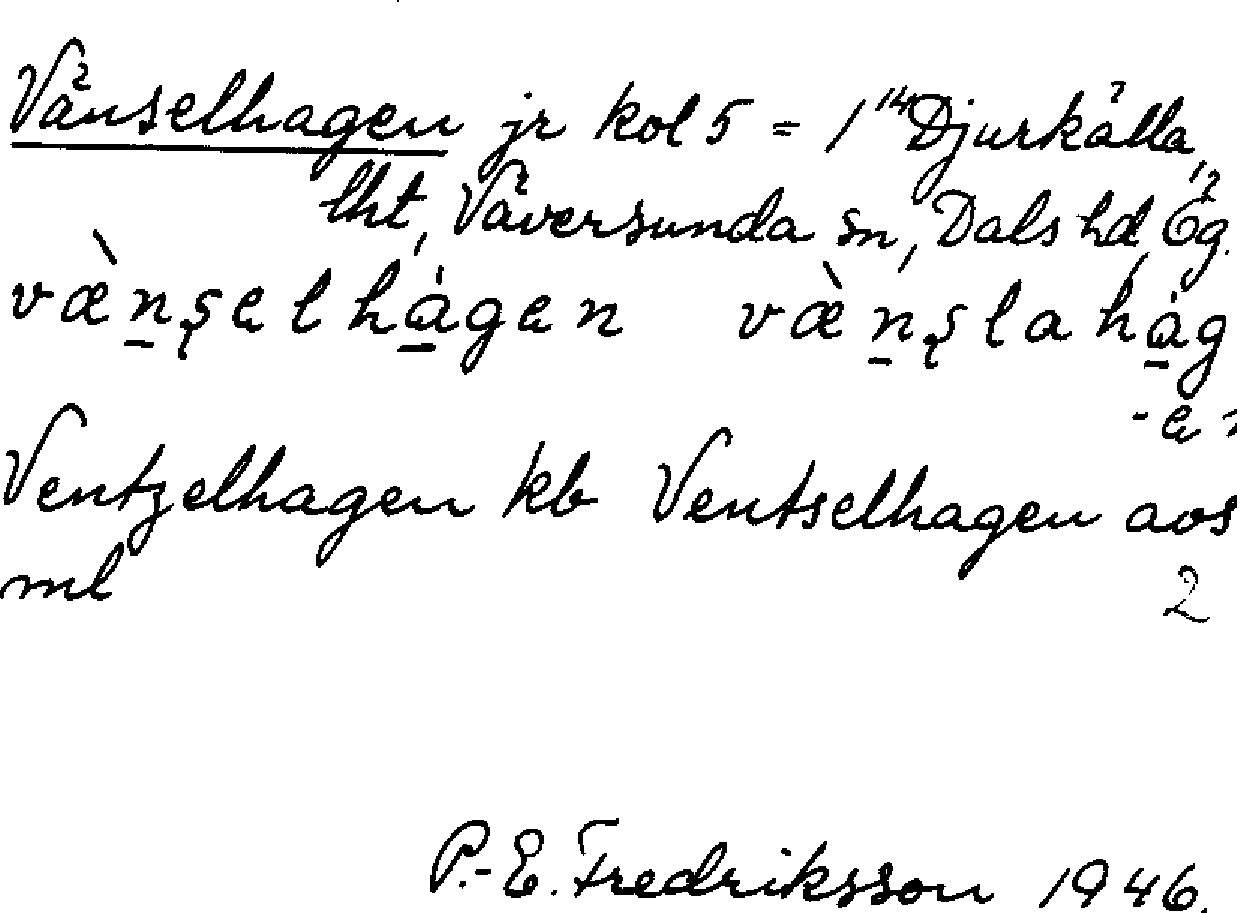 Vänselhagen jr kol 5 = 1¹⁴ Djurkälla,
lht, Väversunda sn, Dals hd, Ög.
væ̀n̠şelhá̠gen væ̀n̠şlahá̠g
-en
Ventzelhagen kb Ventselhagen aos
ml 2
P.-E. Fredriksson 1946.